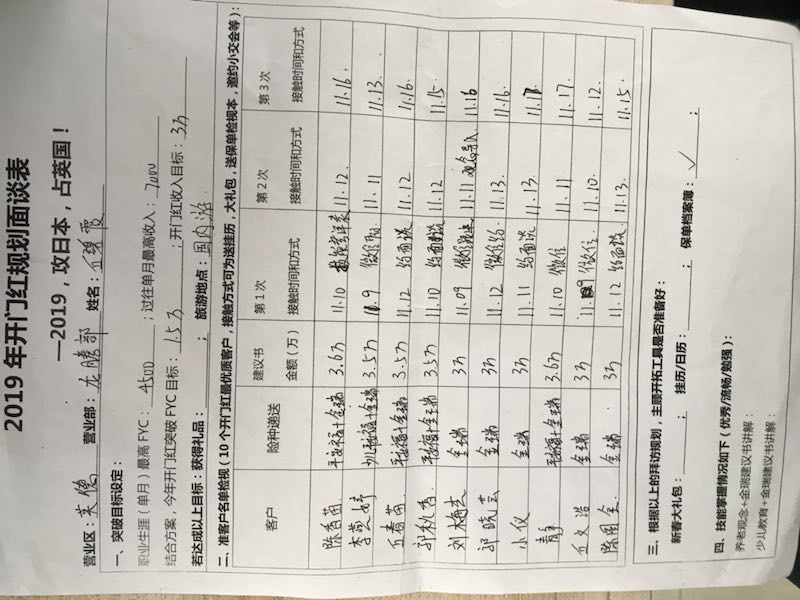 2019 年开门红规划面谈表
—2019，攻日本，占英国！
营业区：英德 营业部：龙腾部 姓名：丘碧霞
一、突破目标设定：
职业生涯（单月）最高 FYC：4500；过往单月最高收入：7000
结合方案，今年开门红突破 FYC 目标：1.5万；开门红收入目标：3万
若达成以上目标：获得礼品：；旅游地点：国内游
二、准客户名单检视（10 个开门红最优质客户，接触方式可为送挂历，大礼包，送保单检视本，邀约小交会等）：
客户 险种递送 建议书金额（万） 第 1 次接触时间和方式 第 2 次接触时间和方式 第 3 次接触时间和方式
陈香苟 福+金瑞 3.6万 11.10 11.12. 11.16.
李 福+金瑞 3.5万 11.9 11.11 11.13.
丘春苟 福+金瑞 3.5万 11.12 约面谈 11.12 11.16.
郭秋香 福+金瑞 3.5万 11.10 约面谈 11.12 11.15
刘梅 金瑞 3万 11.09 11.11 11.16
郭晓芸 金瑞 3万 11.12 11.13. 11.16.
小仪 金瑞 3万 11.11 约面谈 11.13. 11.17.
静 福+金瑞 3.6万 11.10 11.11 11.17.
丘文浩 金瑞 3万 11.09 11.10. 11.12.
陈国金 金瑞 3万 11.12 约面谈 11.13. 11.15.
三、根据以上的拜访规划，主顾开拓工具是否准备好：
新春大礼包：；挂历/日历：；保单档案簿：✓；
四、技能掌握情况如下（优秀/流畅/勉强）：
养老观念+金瑞建议书讲解：
少儿教育+金瑞建议书讲解：